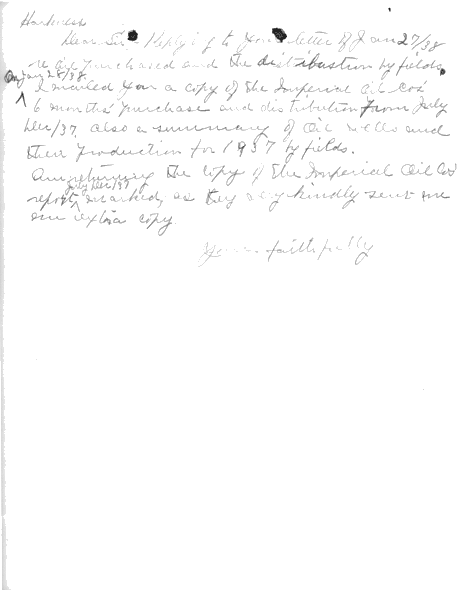 Harkness
Dear Sir - Replying to your letter of Jan 27/38
re oil purchased and the distribution by fields,
On Jan 28/38
I mailed you a copy of the Imperial Oil Cos'
6 months' purchase and distribution from July
Dec/37, also a summary of oil wells and
their production for 1937 by fields.
Am returning the copy of the Imperial Oil Cos'
July Dec/37
report, marked, as they very kindly sent me
an extra copy.
Yours faithfully